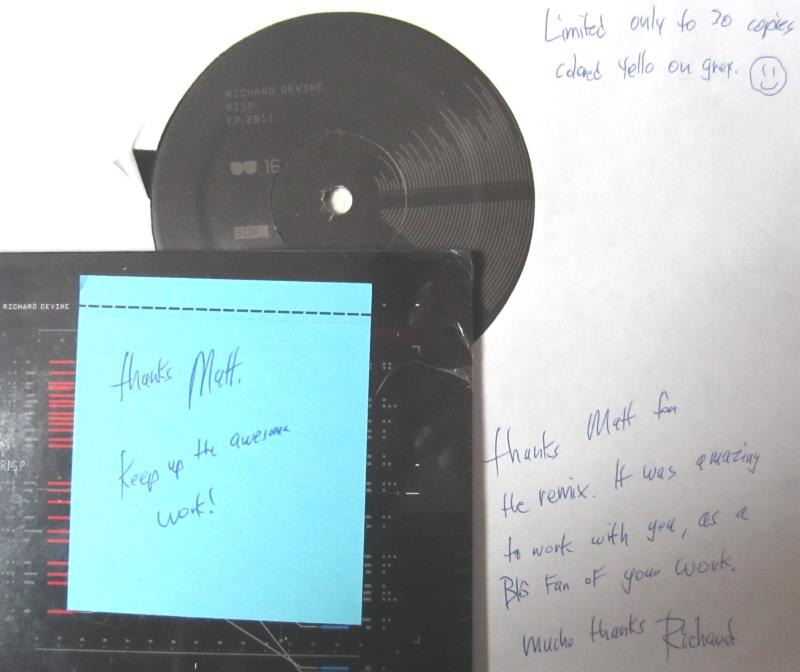 Limited only to 30 copies
colored Yello on grey.
RICHARD DEVINE
RISP
EP 2011
16
SIDE
RICHARD DEVINE
RISP
thanks Matt.
Keep up the awesome
work!
thanks Matt for
the remix. It was amazing
to work with you, as a
BIG Fan of your work.
mucho thanks Richard